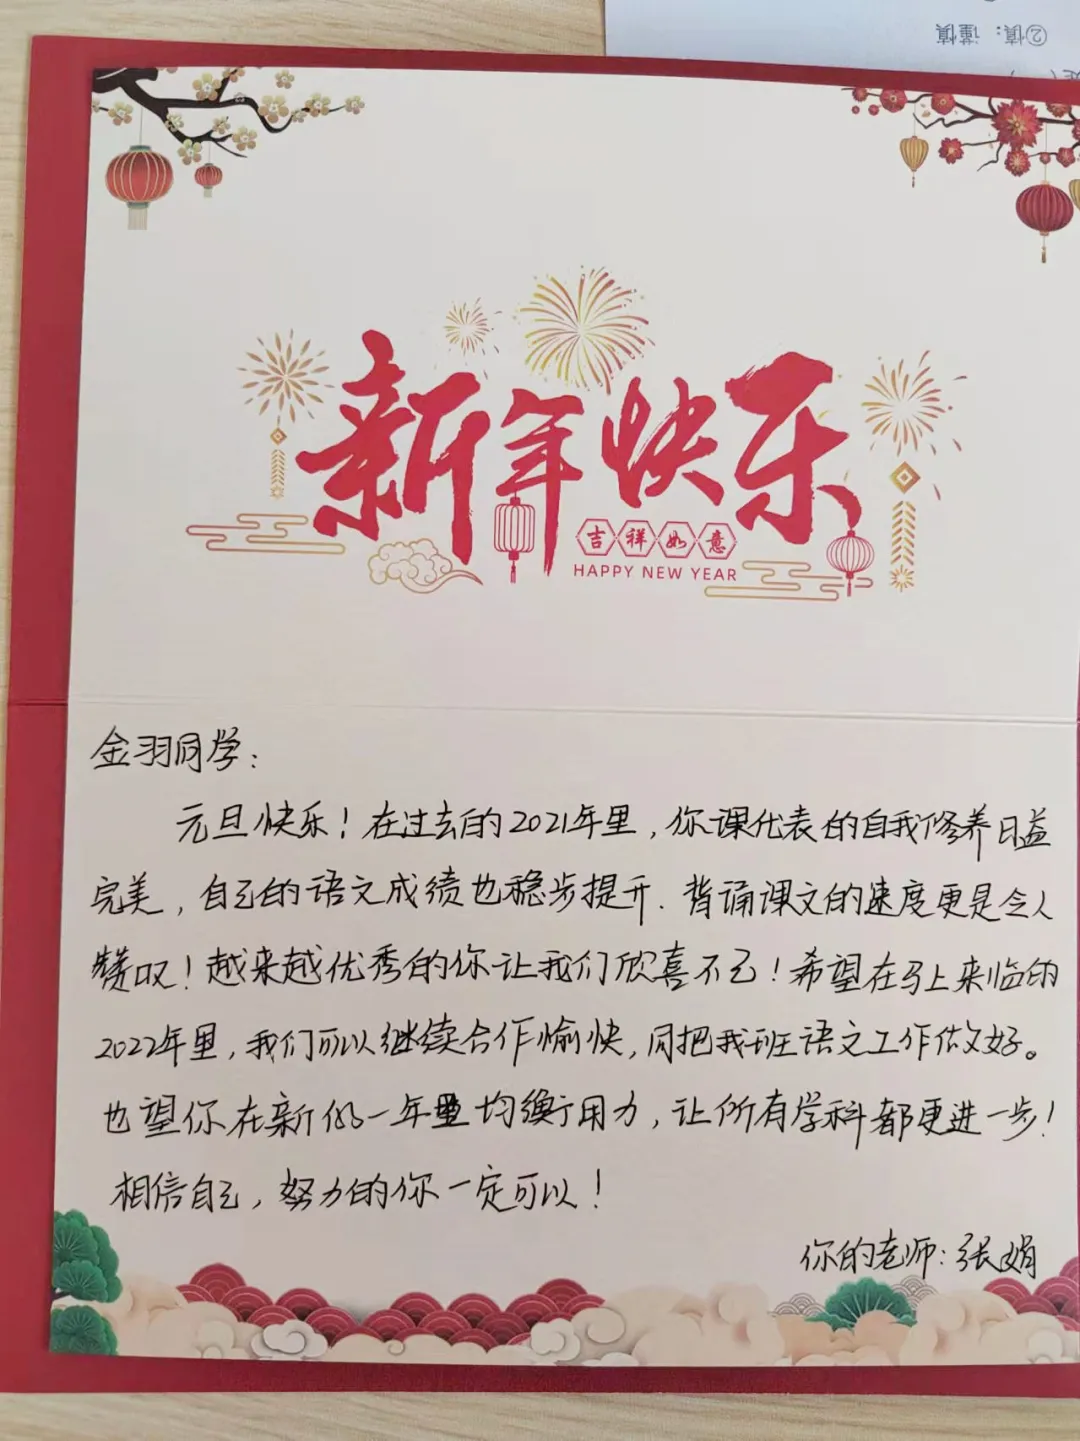 ②慎：谨慎
新年快乐
吉祥如意
HAPPY NEW YEAR
金羽同学：
元旦快乐！在过去的2021年里，你课代表的自我修养日益
完美，自己的语文成绩也稳步提升．背诵课文的速度更是令人
赞叹！越来越优秀的你让我们欣喜不已！希望在马上来临的
2022年里，我们可以继续合作愉快，同把我班语文工作做好。
也望你在新的一年里均衡用力，让所有学科都更进一步！
相信自己，努力的你一定可以！
你的老师：张娟